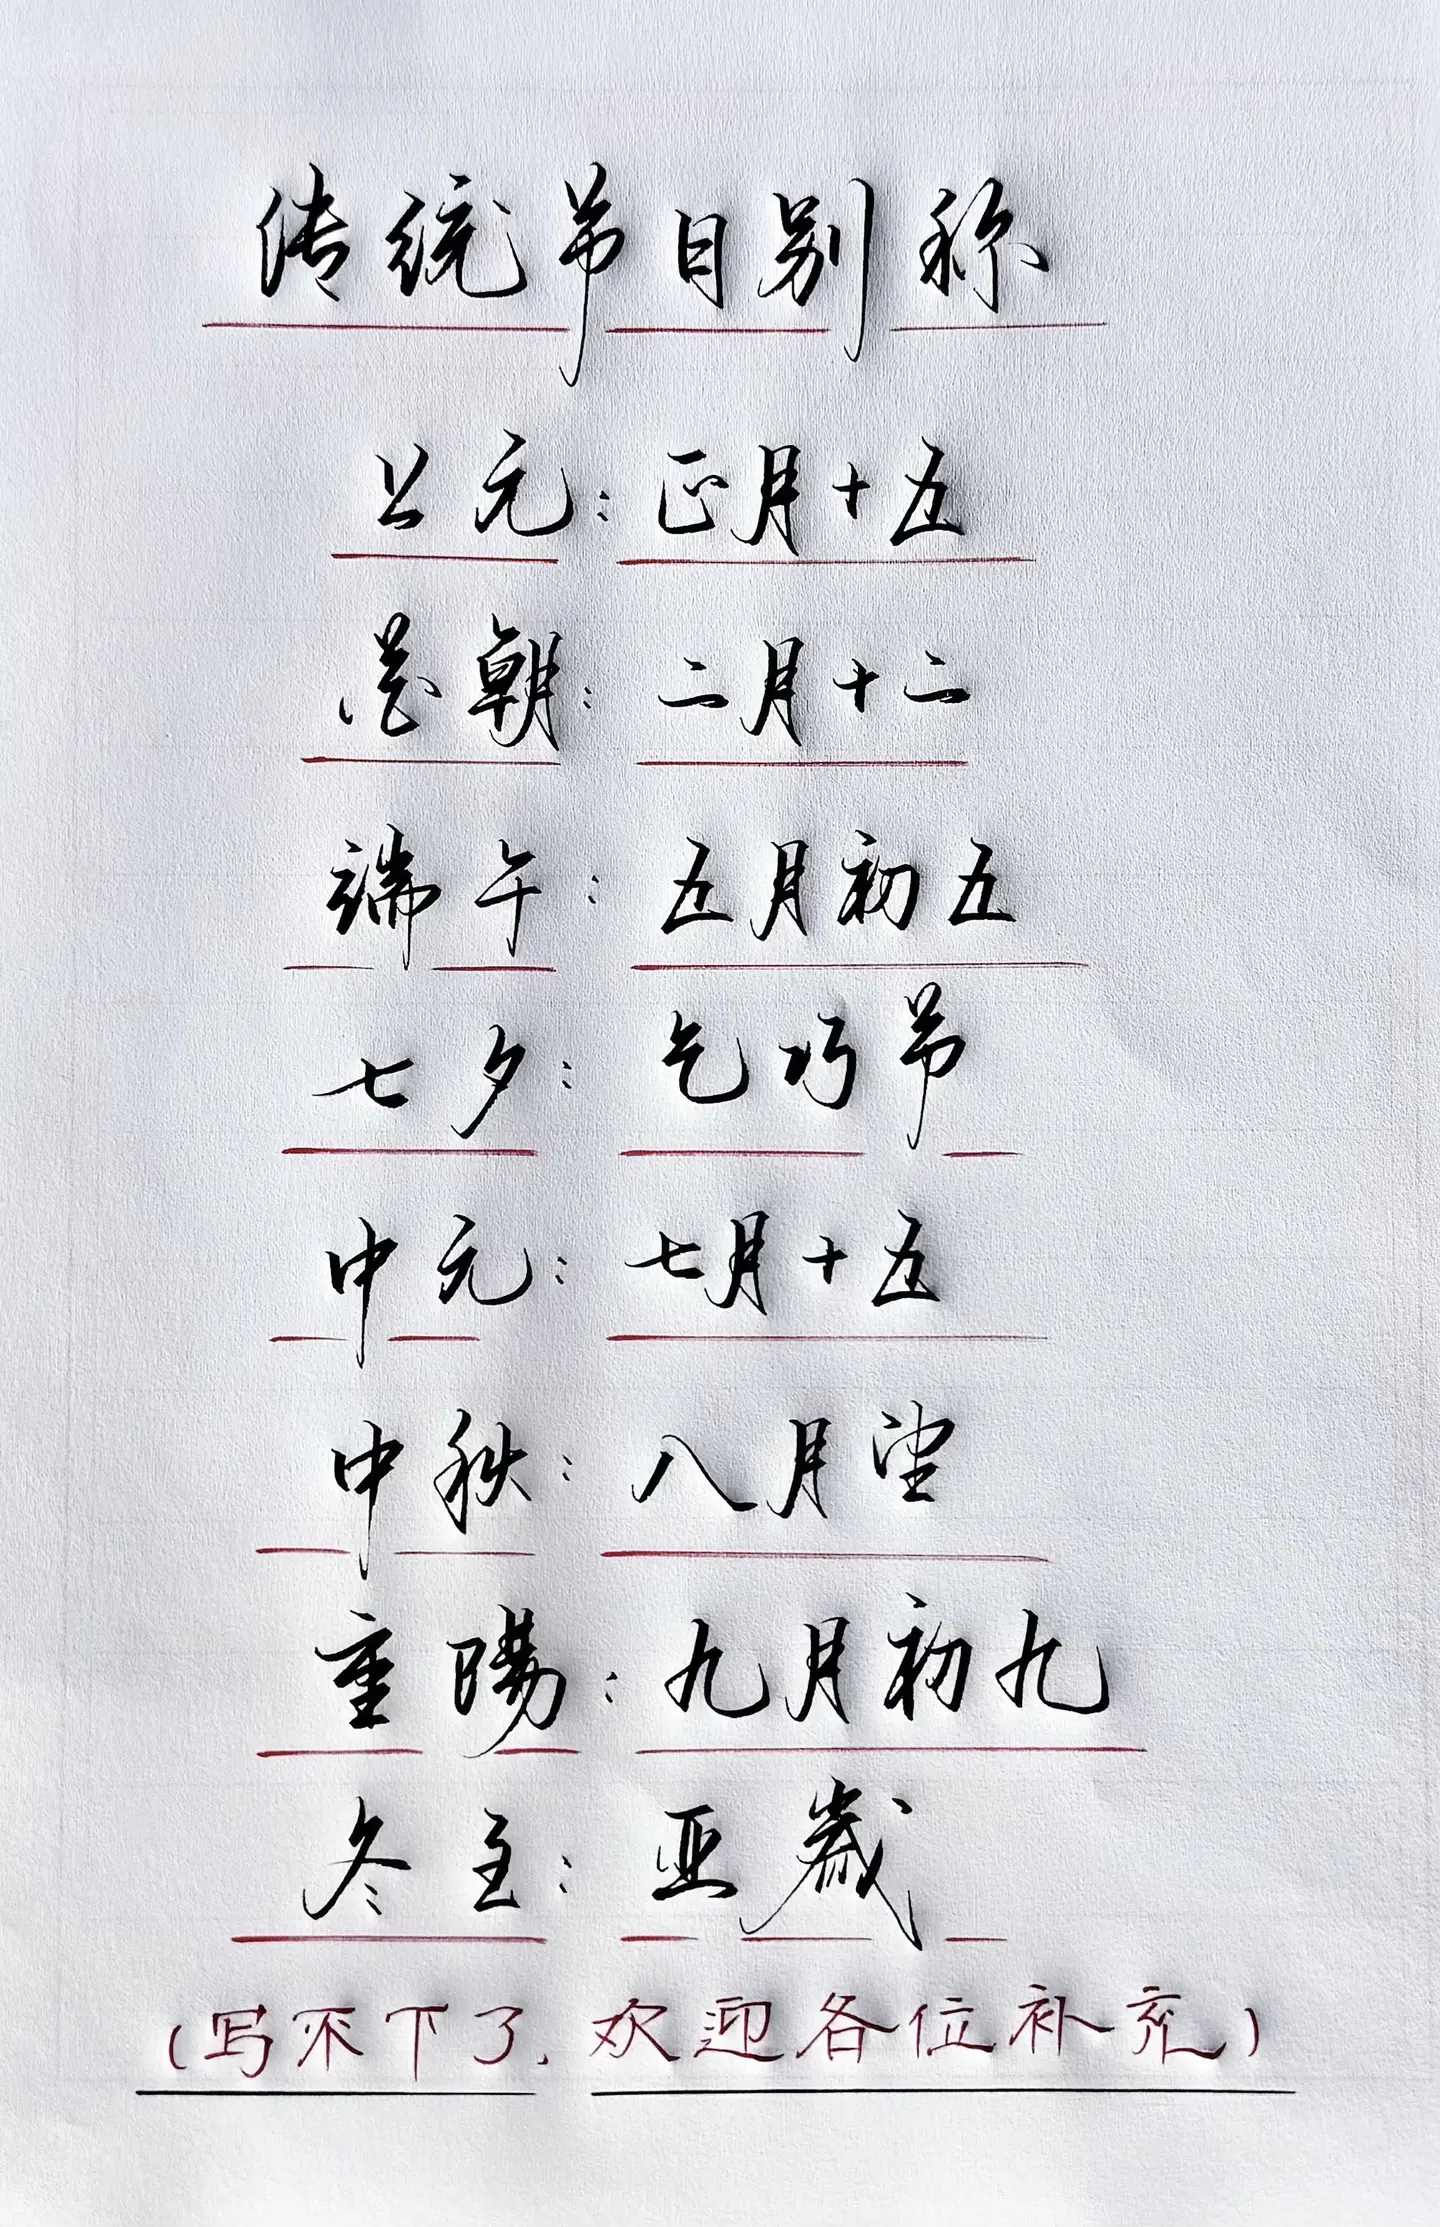 传统节日别称
上元：正月十五
花朝：二月十二
端午：五月初五
七夕：乞巧节
中元：七月十五
中秋：八月望
重陽：九月初九
冬至：亚歳
（写不下了，欢迎各位补充）